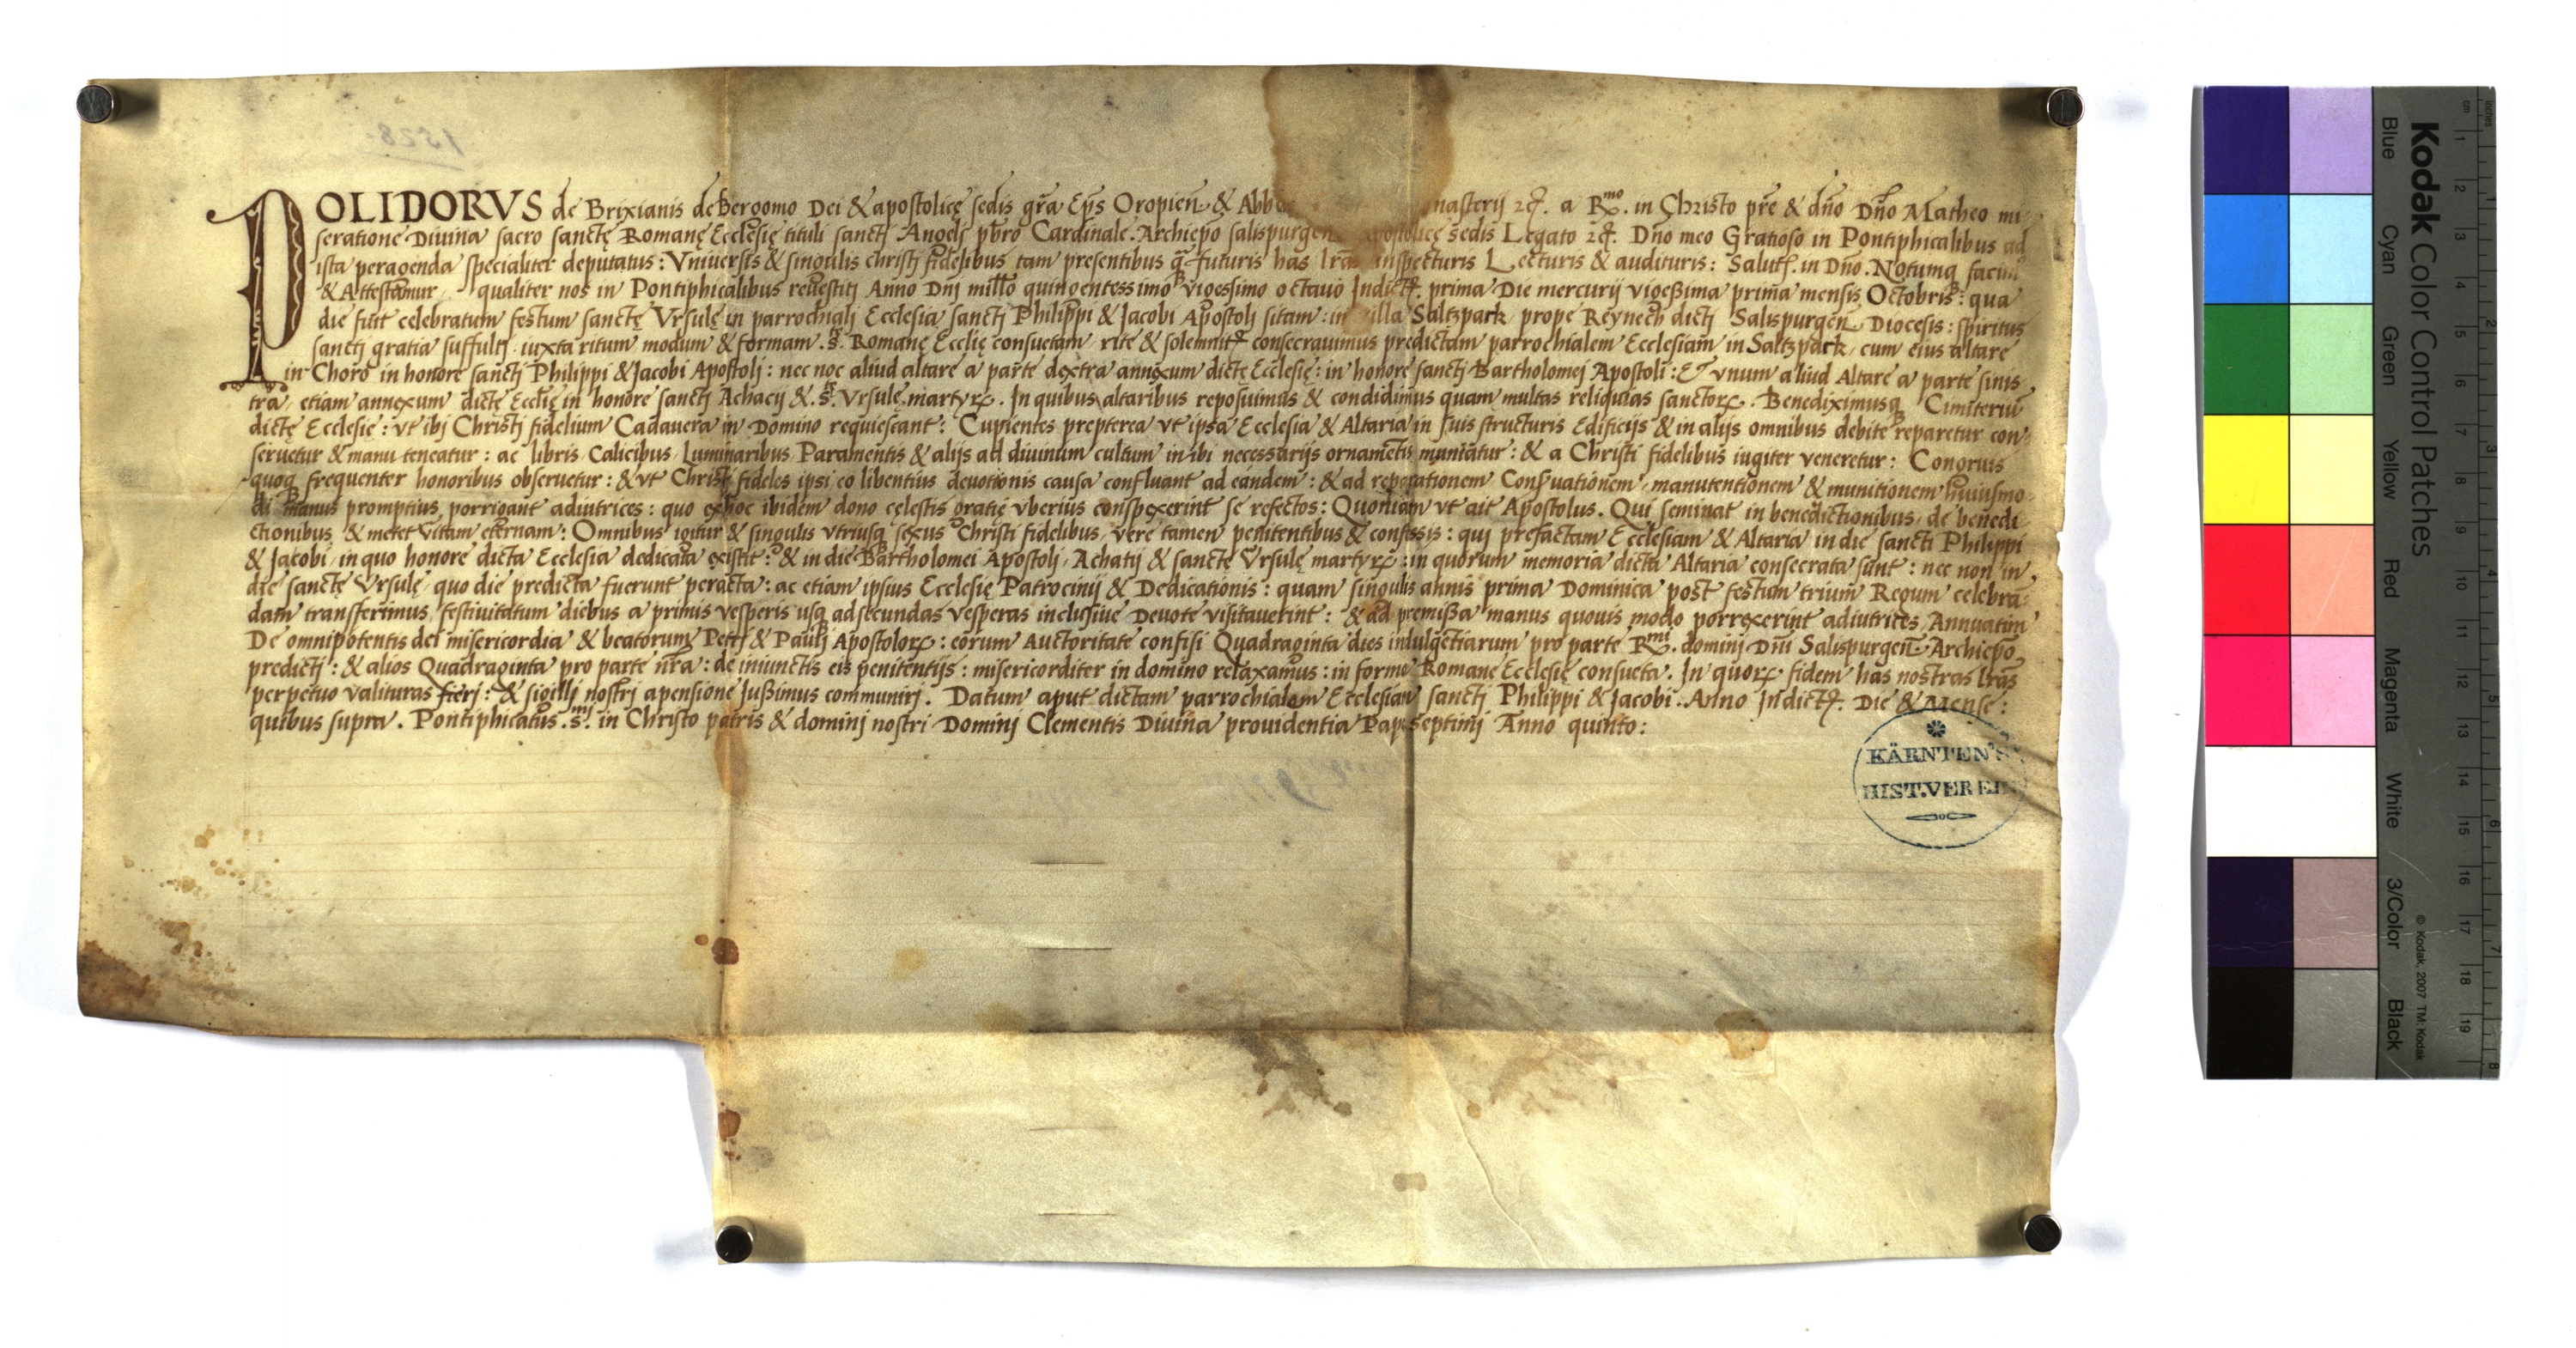 1528
POLIDORVS de Brixianis de Bergomo Dei & apostolicę sedis gr̃a Ep̃s Oropień & Abb nasterij ⁊c̃. a Rmo. in Christo pr̃e & dño Dño Matheo mi-
seratione Diuina sacro sanctę Romanę Ecclesię tituli sanctj Angelj pb̃ro Cardinale. Archiep̃o salispurgeñ apostolicę sedis Legato ⁊c̃. Dño meo Gratioso in Pontiphicalibus ad
ista peragenda specialiter deputatus: Vniuersis & singulis christj fidelibus tam presentibus q̃ futuris has lr̃as inspecturis Lecturis & audituris: Salut̃. in Dño. Notumq facim9
& Attestamur, qualiter nos in Pontiphicalibus reuestitj Anno Dñj millo quingentessimo vigessimo octauo Indict̃. prima Die mercurij vigeßima prima mensis Octobris: qua
die fuit celebratum festum sanctę Vrsulę in parrochialj Ecclesia sanctj Philippi & Jacobi Apostolj sitam: in villa Saltzpack prope Reynech dictj Salispurgeñ Diocesis: spiritus
sanctj gratia suffultj iuxta ritum modum & formam .s. Romanę Ecclię consuetam rite & solemnit̃ consecrauimus predictam parrochialem Ecclesiam in Saltzpack, cum eius altare
in Choro in honore sanctj Philippi & Jacobi Apostolj: nec nõc aliud altare a parte dextra annexum dictę Ecclesię: in honore sanctj Bartholomej Apostoli: & vnum aliud Altare a parte sinis,
tra, etiam annexum dictę Ecclię in honore sanctj Achacij & .s. Vrsulę martyrꝝ. In quibus altaribus reposuimus & condidimus quam multas reliquias sanctorꝝ. Benediximusq Cimiteriũ
dictę Ecclesię: vt ibj Christj fidelium Cadauera in Domino requiescant: Cupientes prepterea vt ipsa Ecclesia & Altaria in suis structuris Edificijs & in alijs omnibus debite reparetur con-
seruetur & manu teneatur: ac libris Calicibus, Luminaribus, Paramentis & alijs ad diuinum cultum inibi necessarijs ornamẽtis muniatur: & a Christi fidelibus iugiter veneretur: Congruis
quoq frequenter honoribus obseruetur: & vt Christi fideles ipsi eo libentius deuotionis causa confluant ad eandem: & ad reparationem Conseruationem, manutentionem & munitionem huiusmo-
di manus promptius porrigant adiutrices: quo ex hoc ibidem dono cęlestis gratię vberius conspexerint se refectos: Quoniam vt ait Apostolus. Qui seminat in benedictionibus, de benedi-
ctionibus & metet vitam eternam: Omnibus igitur & singulis vtriusq sexus Christi fidelibus, vere tamen penitentibus & confessis: qui prefactam Ecclesiam & Altaria in die sancti Philippi
& Jacobi, in quo honore dicta Ecclesia dedicata existit: & in die Bartholomei Apostolj, Achatij & sanctę Vrsulę martyrꝝ: in quorum memoria dicta Altaria consecrata sunt: nec non in
die sanctę Vrsulę quo die predicta fuerunt peracta: ac etiam ipsius Ecclesię Patrocinij & Dedicationis: quam singulis annis prima Dominica post festum trium Regum celebra-
dam transferimus, festiuitatum diebus a primis vesperis usq ad secundas vesperas inclusiue Deuote visitauerint: & ad premißa manus quouis modo porrexerint adiutrices, Annuatim
De omnipotentis dei misericordia & beatorum Petri & Paulj Apostolorꝝ: eorum Auctoritate confisi Quadraginta dies indulgẽtiarum pro parte Rmi. dominj Dñi Salispurgeñ Archiep̃o
predictj: & alios Quadraginta pro parte nr̃a: de iniunctis eis penitentijs: misericorditer in domino relaxamus: in forma Romanę Ecclesię consueta. In quorꝝ fidem has nostras lr̃as
perpetuo valituras fierj: & sigillj nostri apensione Jußimus communirj. Datum aput dictam parrochialem Ecclesiam sanctj Philippi & Jacobi. Anno Indict̃. Die & Mense:
quibus supra. Pontiphicatus .smi. in Christo patris & dominj nostri Dominj Clementis Diuina prouidentia Pap. septimj Anno quinto:
KÄRNTEN'S
HIST.VEREIN
Kodak Color Control Patches
Blue Cyan Green Yellow Red Magenta White 3/Color Black
© Kodak, 2007 TM: Kodak
cm 1 2 3 4 5 6 7 8 9 10 11 12 13 14 15 16 17 18 19
inches 1 2 3 4 5 6 7 8